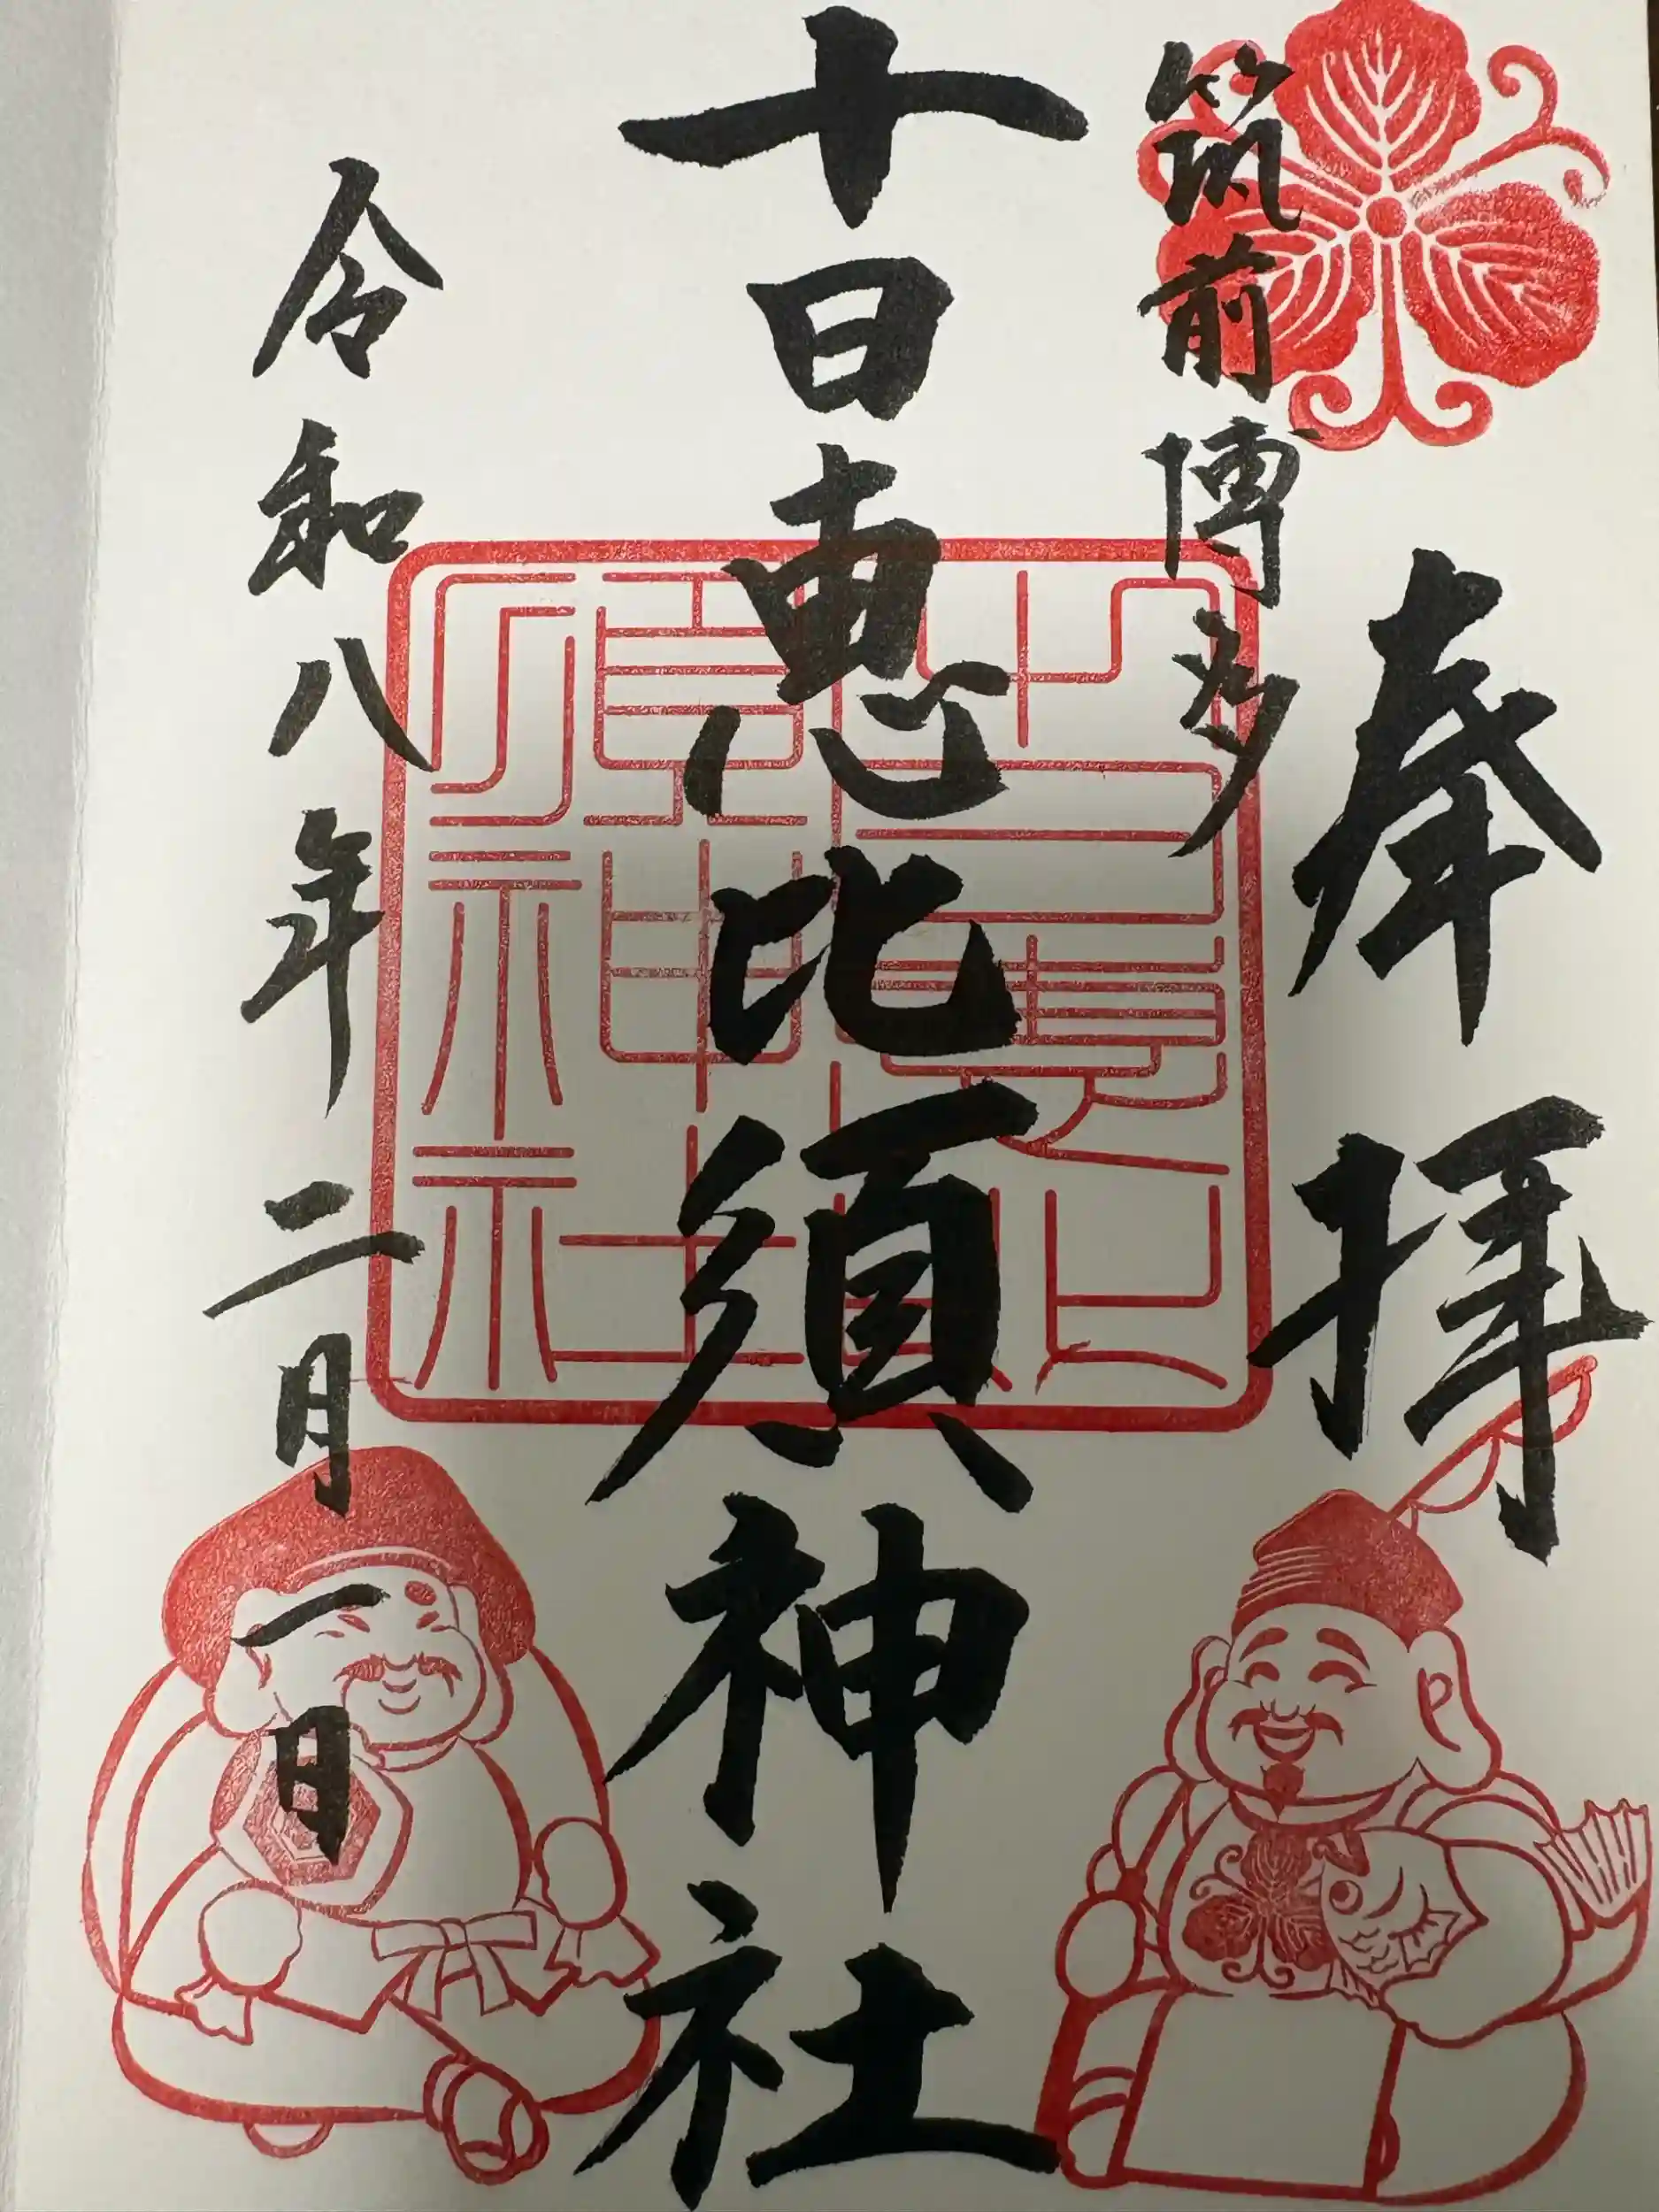 奉拝
筑前博多
十日恵比須神社
十日恵比須神社
令和八年二月一日